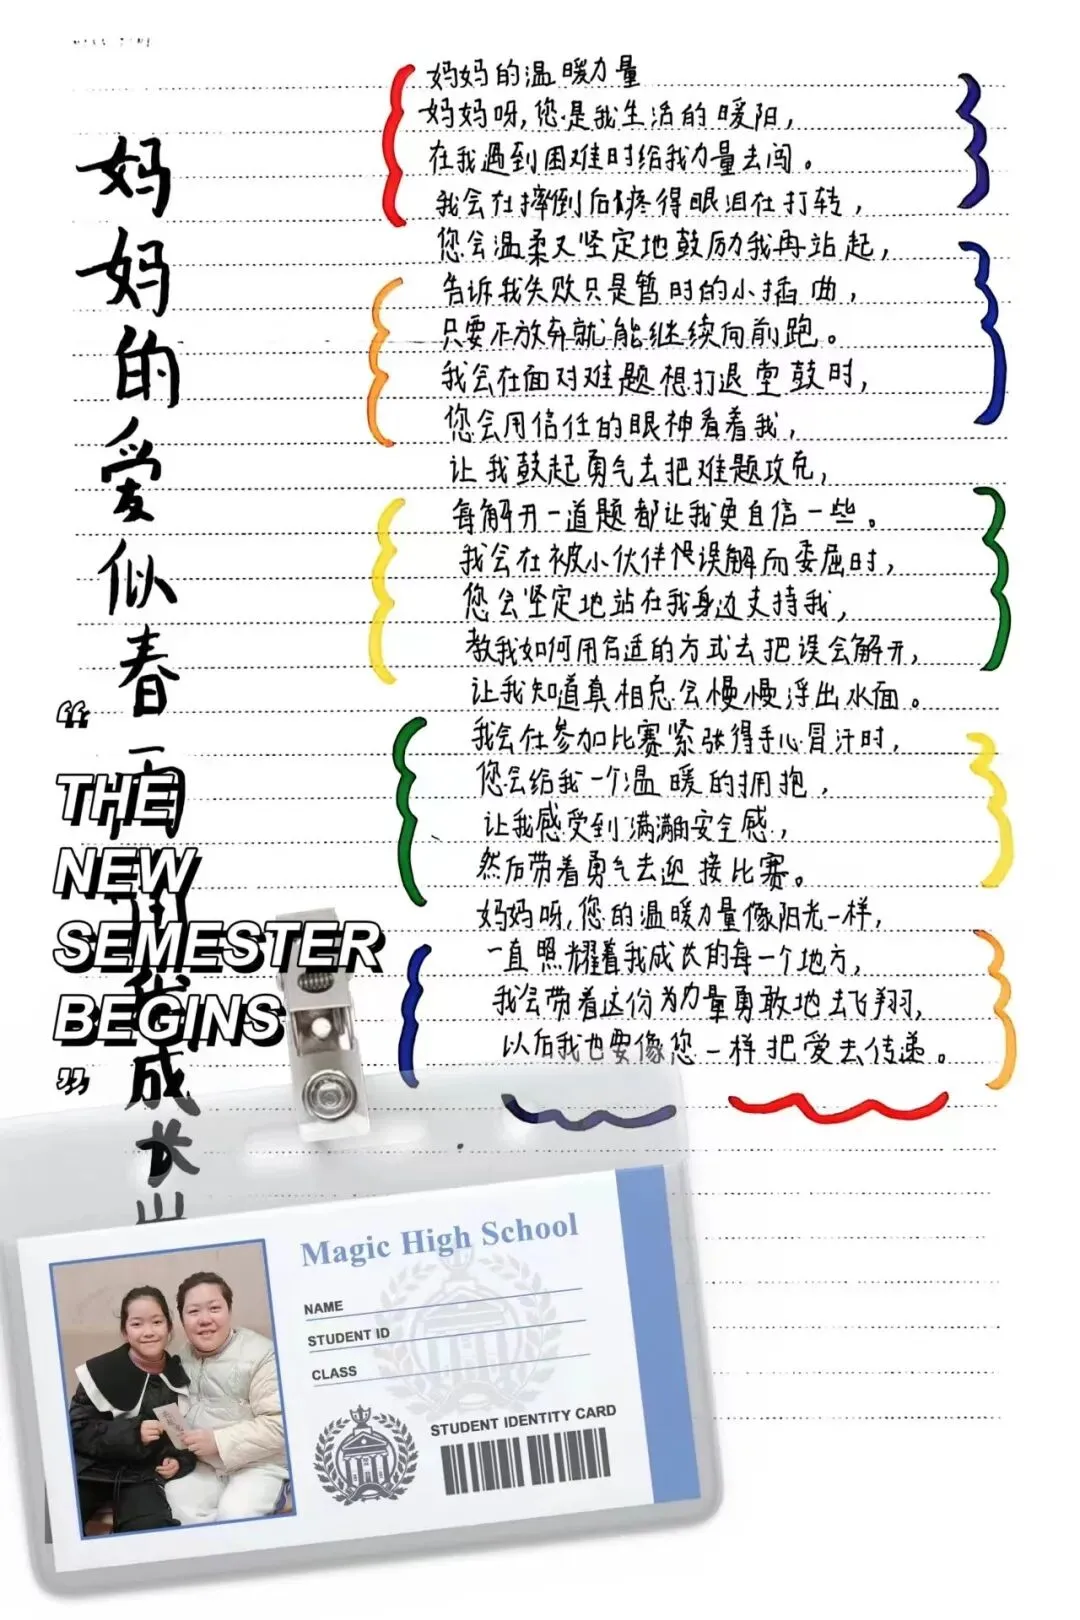 妈妈的爱似春雨
我成长
妈妈的温暖力量
妈妈呀,您是我生活的暖阳,
在我遇到困难时给我力量去闯。
我会在摔倒后疼得眼泪在打转,
您会温柔又坚定地鼓励我再站起,
告诉我失败只是暂时的小插曲,
只要不放弃就能继续向前跑。
我会在面对难题想打退堂鼓时,
您会用信任的眼神看着我,
让我鼓起勇气去把难题攻克,
每解开一道题都让我更自信一些。
我会在被小伙伴误解而委屈时,
您会坚定地站在我身边支持我,
教我如何用合适的方式去把误会解开,
让我知道真相总会慢慢浮出水面。
我会在参加比赛紧张得手心冒汗时,
您会给我一个温暖的拥抱,
让我感受到满满的安全感,
然后带着勇气去迎接比赛。
妈妈呀,您的温暖力量像阳光一样,
一直照耀着我成长的每一个地方,
我会带着这份为力量勇敢地去飞翔,
以后我也要像您一样把爱去传递。
"
THE
NEW
SEMESTER
BEGINS
"
Magic High School
NAME
STUDENT ID
CLASS
STUDENT IDENTITY CARD